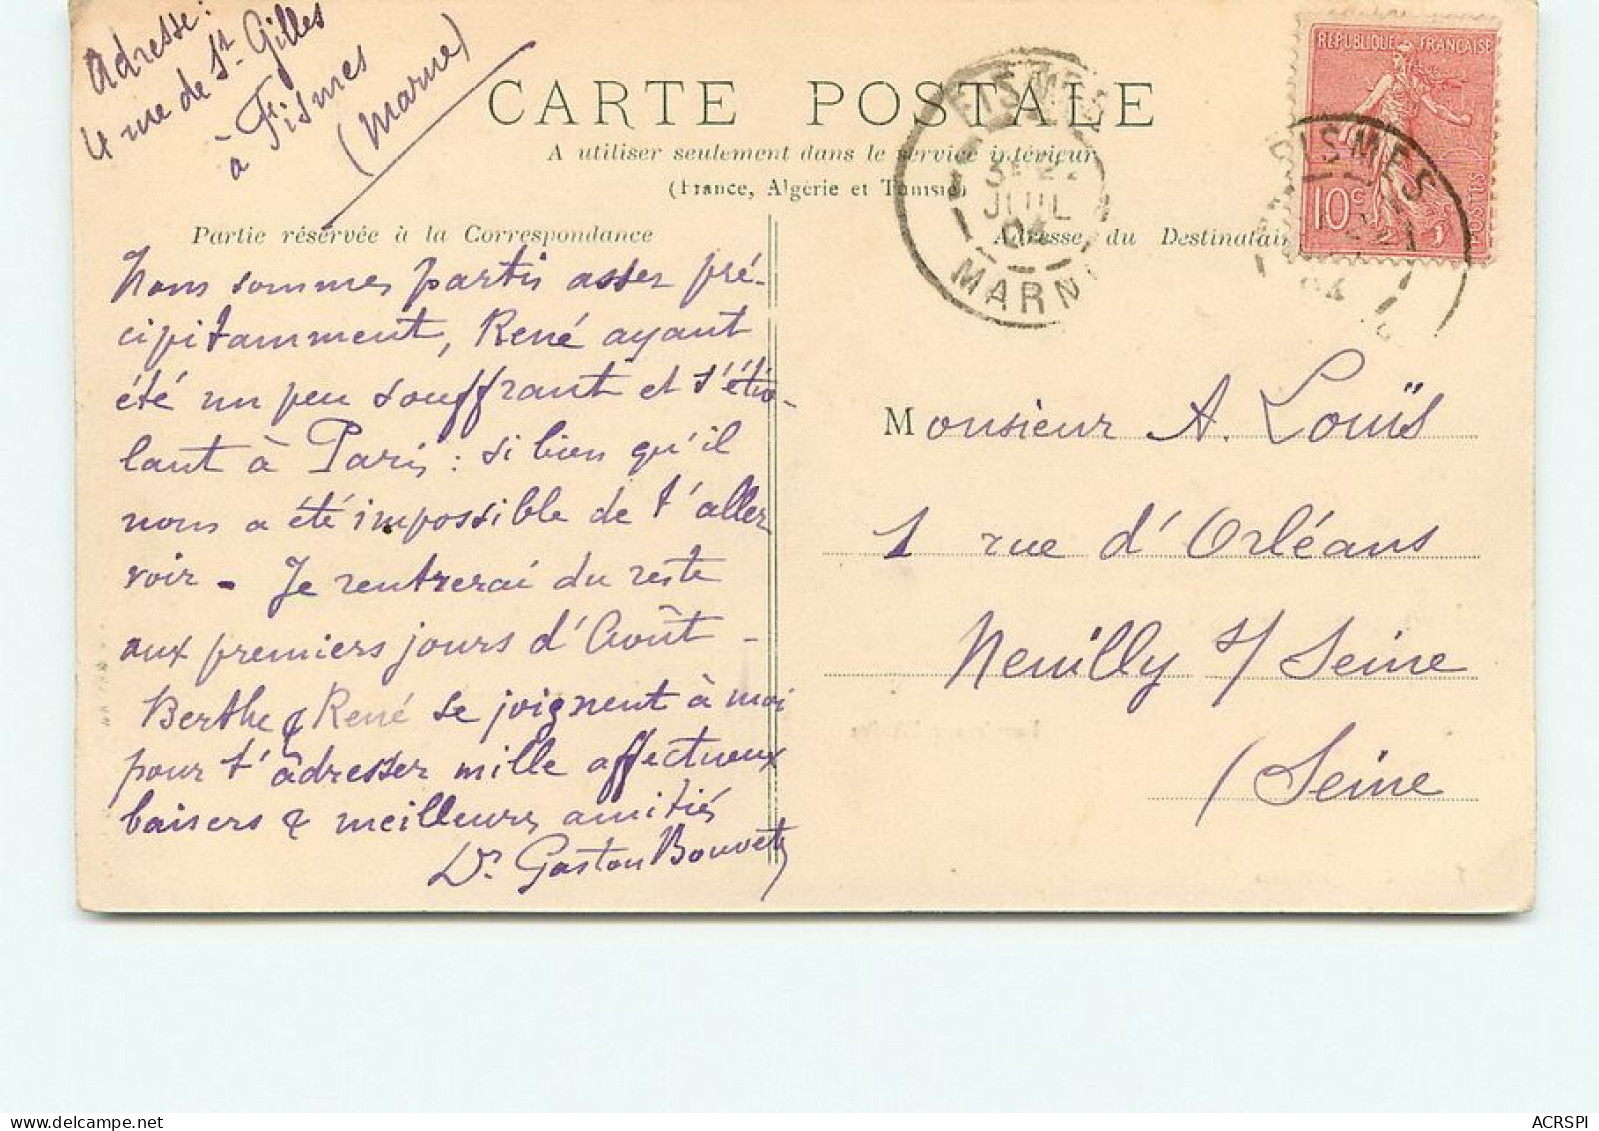 Adresse:
4 rue de St. Gilles
à Fismes
(Marne)
CARTE POSTALE
A utiliser seulement dans le service intérieur
(France, Algérie et Tunisie)
Partie réservée à la Correspondance
Nous sommes partis assez pré-
cipitamment, René ayant
été un peu souffrant et s'étio-
lant à Paris : si bien qu'il
nous a été impossible de t'aller
voir - Je rentrerai du reste
aux premiers jours d'Août -
Berthe & René se joignent à moi
pour t'adresser mille affectueux
baisers & meilleures amitiés
Dr. Gaston Bouvet
FISMES
JUIL
04
MARNE
REPUBLIQUE FRANÇAISE
10c
POSTES
FISMES
04
Adresse du Destinatair
Monsieur A. Louïs
1 rue d'Orléans
Neuilly s/ Seine
(Seine
ACRSPI